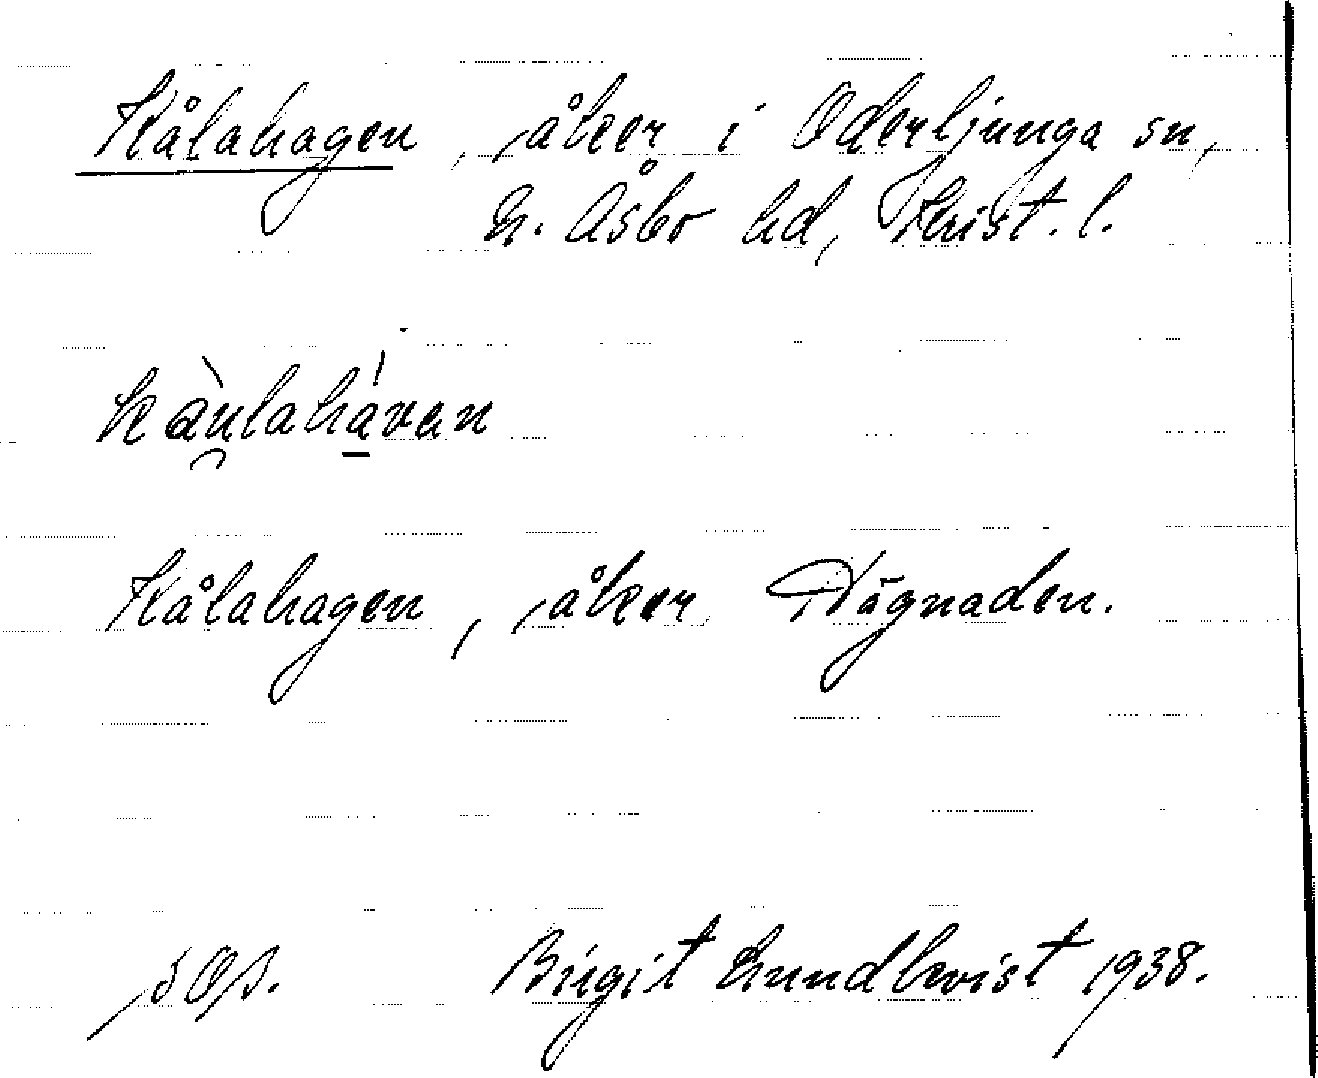 Kålahagen, åker i Oderljunga sn,
N. Åsbo hd, Krist. l.
kàu̯lahá̠van
Kålahagen, åker Högnaden.
Birgit Lundkvist 1938.